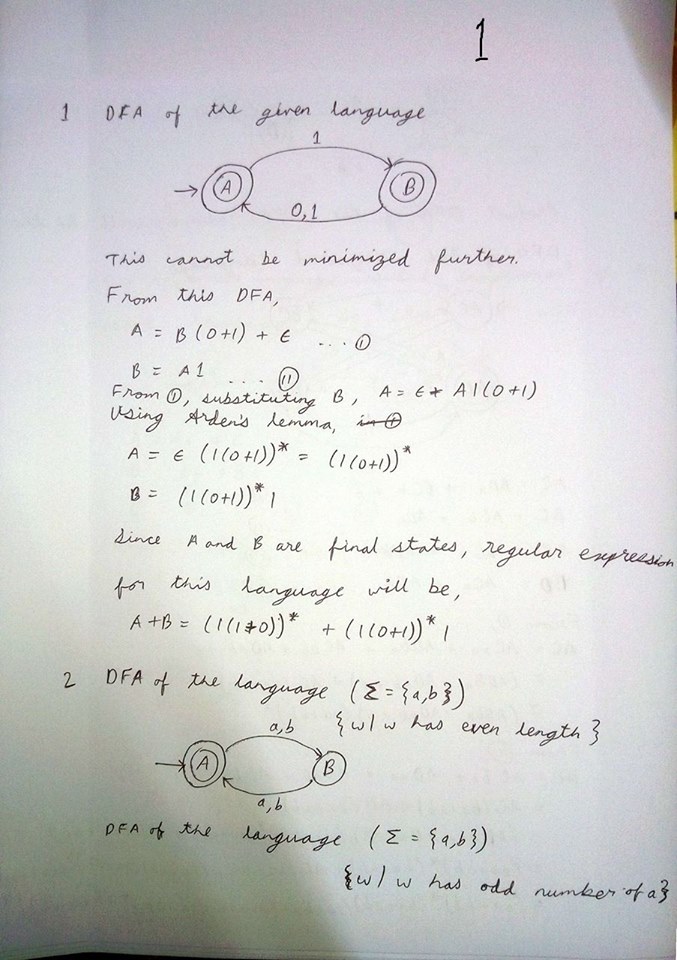 1
1 DFA of the given language
1
A B
0,1
This cannot be minimized further.
From this DFA,
A = B(0+1) + ϵ ... (I)
B = A1 .... (II)
From (I), substituting B, A = ϵ + A1(0+1)
Using Arden's lemma,
A = ϵ (1(0+1))* = (1(0+1))*
B = (1(0+1))*1
Since A and B are final states, regular expression
for this language will be,
A+B = (1(1+0))* + (1(0+1))*1
2 DFA of the language (Σ = {a,b})
{w| w has even length}
a,b
A B
a,b
DFA of the language (Σ = {a,b})
{w| w has odd number of a}